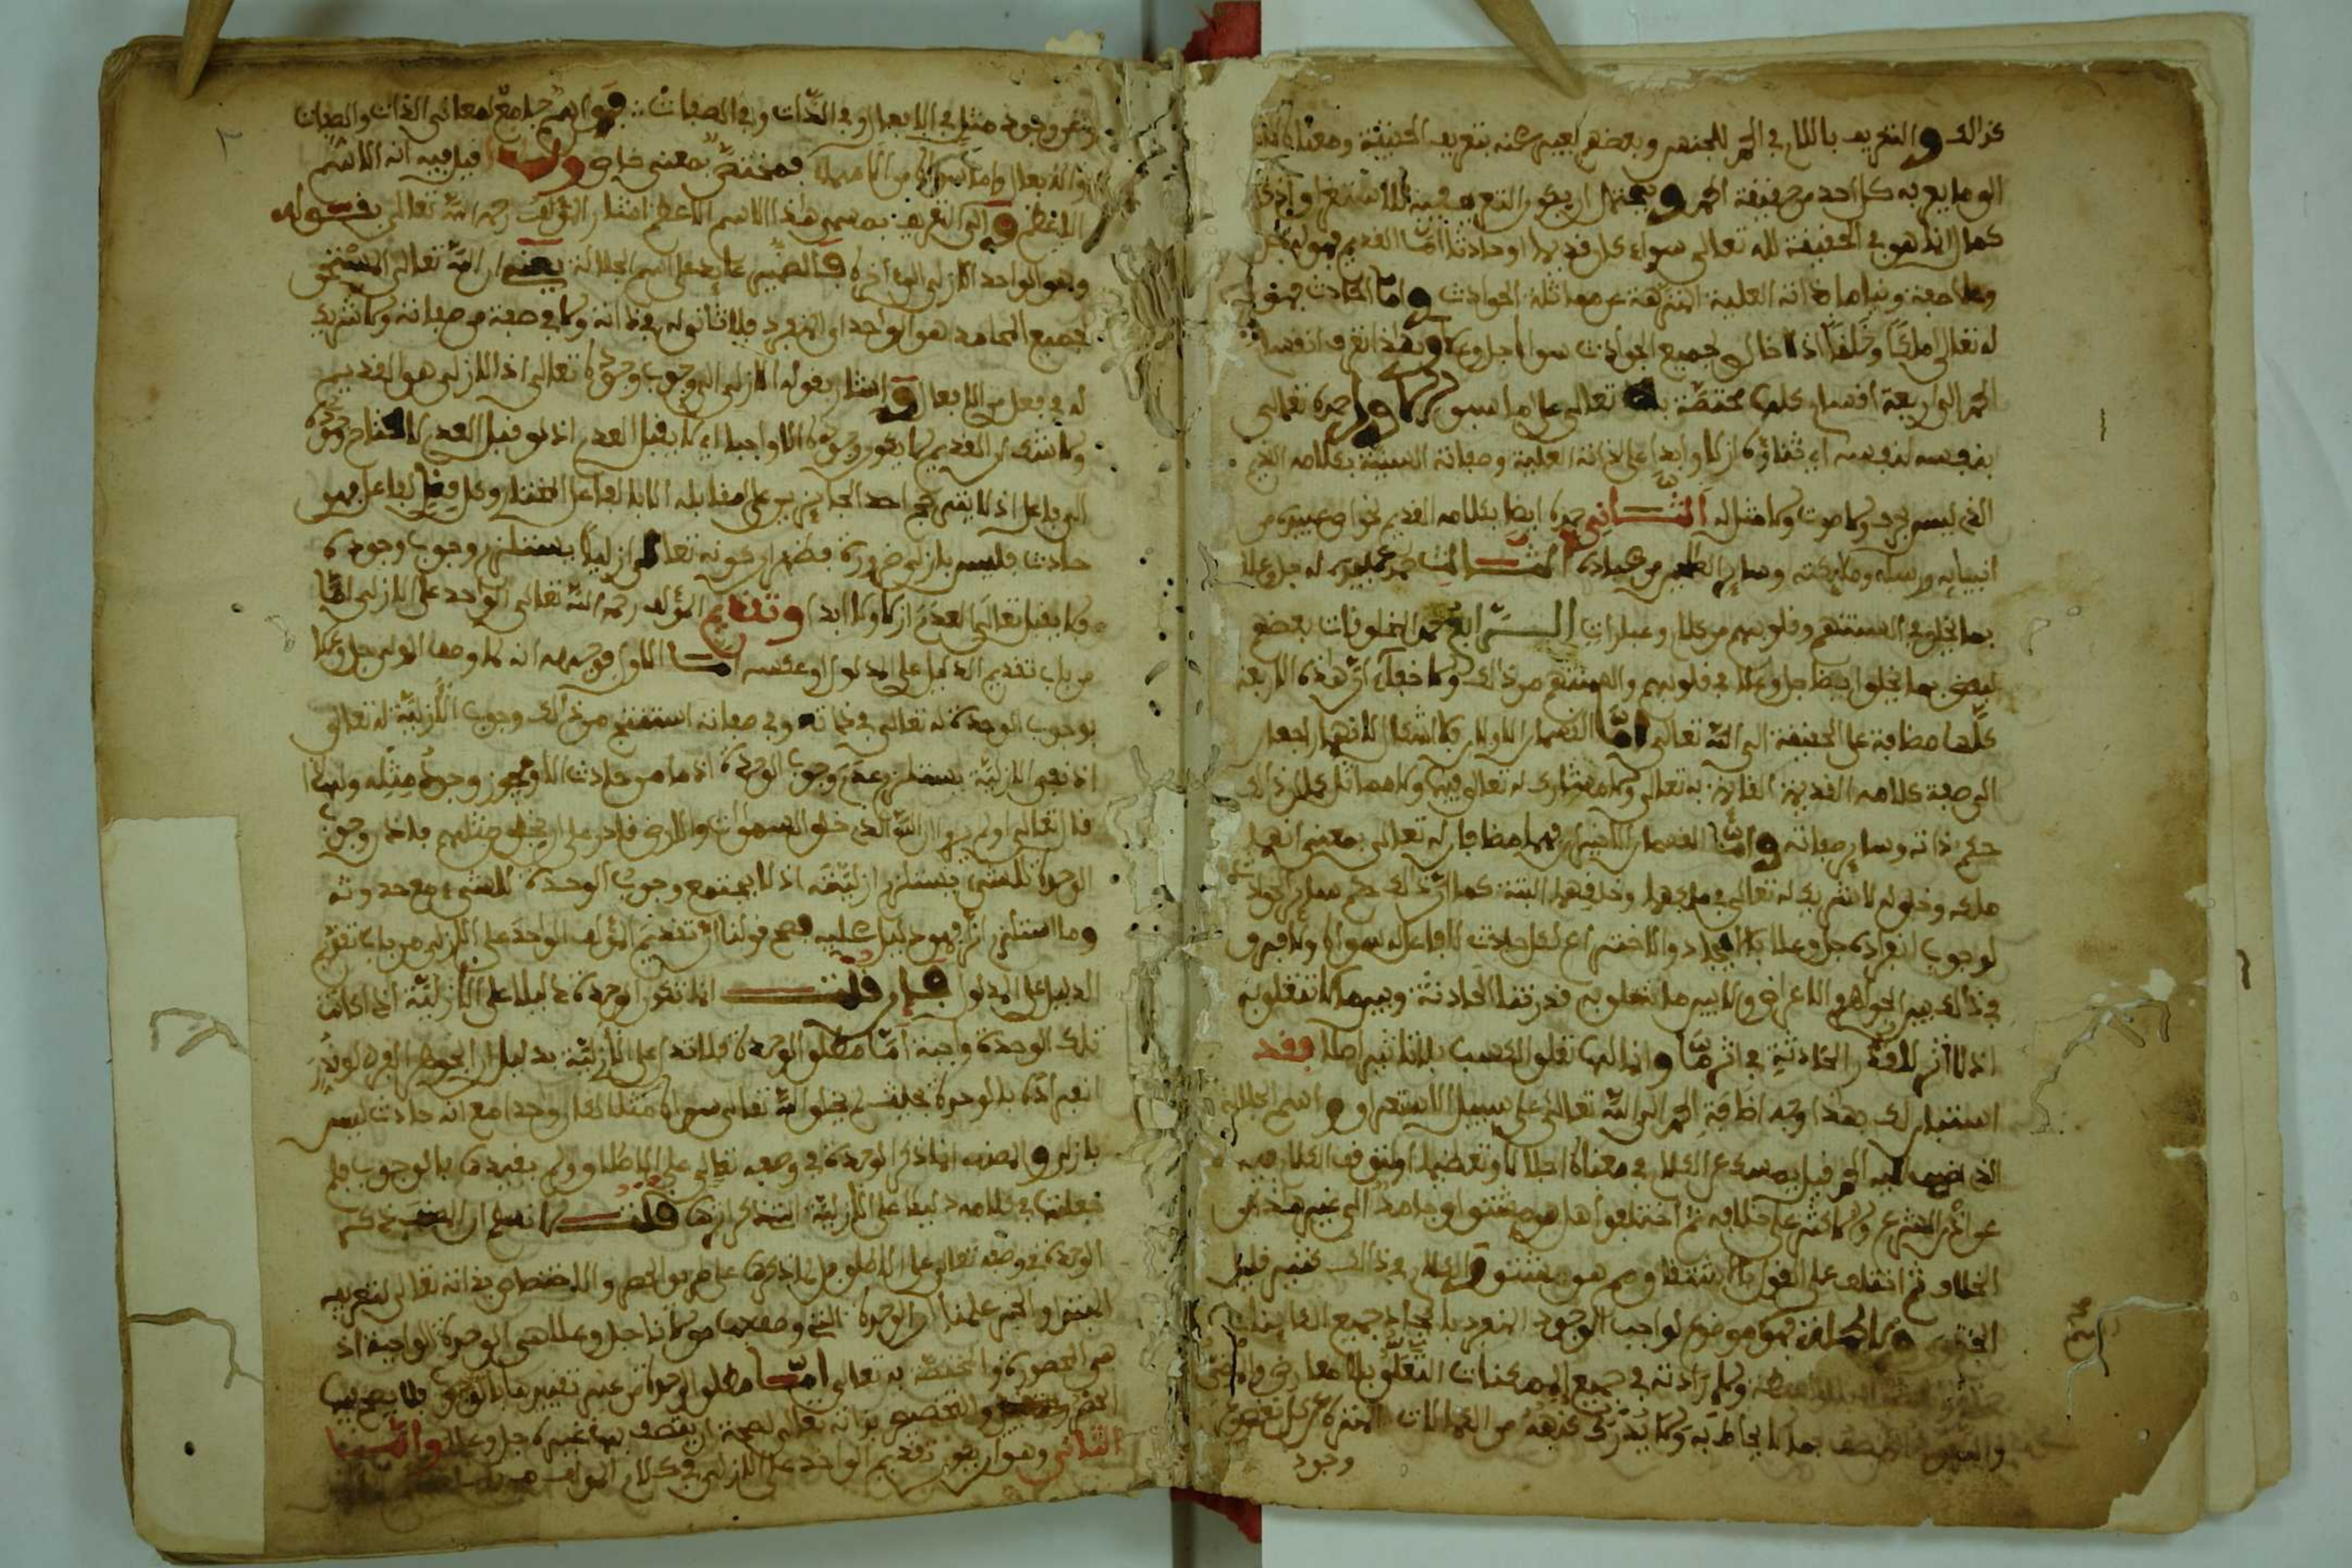 كذالك والتعريف باللام في الحمد للجنس وبعضهم يعبر عنه بتعريف الحقيقة ومعناه
الى ما يعرفه كل احد من حقيقة الحمد ويحتمل ان يكون التعريف فيه للاستغراق اذ كل
كمال انما هو في الحقيقة لله تعالى سواء كان قديما او حادثا اما القديم فهو
وصفه وقيامه بذاته العلية المنزهة عن مماثلة الحوادث واما الحادث فهو
له تعالى ملكا وخلقا اذ لا خالق لجميع الحوادث سواه جل وعلا وبهذا تعرف انقسام
الحمد الى اربعة اقسام كلها مختصة به تعالى على ما سبق الاول حمده تعالى
بنفسه لنفسه اي ثناؤه ازلا وابدا على ذاته العلية وصفاته السنية بكلامه القديم
الذي ليس بحرف ولا صوت ولا مثل له الثاني حمده ايضا بكلامه القديم لخواص عبيده من
انبيائه ورسله وملائكته وسائر من عباده الثالث حمد عبيده له جل وعلا
بما يخلق في السنتهم وقلوبهم من كلام وعبارات الرابع حمد المخلوقات بعضهم
لبعض بما يخلق ايضا جل وعلا في قلوبهم والسنتهم من ذالك ولا خفاء ان هذه الاربعة
كلها مضافة على الحقيقة الى الله تعالى اما القسمان الاولان فلا اشكال لانهما راجعان
الى صفة كلامه القديمة القائمة به تعالى ولا مشارك له تعالى فيها ولا مماثل كما ان ذالك
حكم ذاته وسائر صفاته واما القسمان الاخيران فهما مضافان له تعالى بمعنى انهما
ملكه وخلقه لا شريك له تعالى في ملكهما وخلقهما البتة كما ان ذالك حكم سائر الحوادث
لوجوب انفراده جل وعلا بالايجاد والاختراع لكل حادث لا فاعل له سواه ولا فرق
في ذالك بين الجواهر والاعراض ولا بين ما تتعلق به قدرتنا الحادثة وبين ما لا تتعلق به
اذ لا اثر للقدر الحادثة في اثر ما وانما لها تعلق الكسب بلا تاثير اصلا فقد
استبان لك بهذا وجه اضافة الحمد الى الله تعالى على سبيل الاستغراق واسم الجلالة
الذي اضيف اليه الحمد قيل يمسك عن الكلام في معناه اجلالا وتعظيما او لتوقف الكلام فيه
عن اذن الشرع والاكثر على خلافه ثم اختلفوا هل هو مشتق او جامد الى غير هذا من
الخلاف ثم اختلف على القول بالاشتقاق مم هو مشتق والكلام في ذالك كثير قليل
الجدوى وبالجملة فهو موضوع لواجب الوجود المنفرد بايجاد جميع الكائنات
ولارادته في جميع الممكنات التعلق بلا معارض
بما لا يحاط به ولا يدرك كنهه من الكمالات المنزه عن كل نقص
وجود
وعن وجود مثل في الافعال او في الذات وفي الصفات فهو اسم جامع لمعاني الذات والصفات
والافعال واما سواه من الاسماء فمختص بمعنى خاص ولهذا قيل فيه انه الاسم
الاعظم والى التعريف بمسمى هذا الاسم الاعظم اشار المؤلف رحمه الله تعالى بقوله
وهو الواحد الازلي الى اخره فالضمير عائد على اسم الجلالة يعني ان الله تعالى المستحق
لجميع المحامد هو الواحد اي المنفرد فلا ثاني له في ذاته ولا في صفة من صفاته ولا شريك
له في فعل من الافعال واشار بقوله الازلي الى وجوب وجوده تعالى اذ الازلي هو القديم
ولا شك ان القديم لا يكون وجوده الا واجبا اي لا يقبل العدم اذ لو قبل العدم لاحتاج وجوده
الى فاعل اذ لا يترجح احد الجائزين على مقابله الا بالفاعل المختار وكل فعل لفاعل فهو
حادث فليس بازلي ضرورة فظهر ان كونه تعالى ازليا يستلزم وجوب وجوده
فلا يقبل تعالى العدم ازلا ولا ابدا وتقديم المؤلف رحمه الله تعالى الواحد على الازلي اما
من باب تقديم الدليل على المدلول او عكسه اما الاول فوجهه انه لما وصف المولى جل وعلا
بوجوب الوحدة له تعالى في ذاته وفي صفاته استنتج من ذالك وجوب الازلية له تعالى
اذ نفي الازلية يستلزم عدم وجوب الوحدة اذ ما من حادث الا ويجوز وجود مثله ولهذا
قال تعالى اولم يروا ان الله الذي خلق السموات والارض قادر على ان يخلق مثلهم فاذا وجوب
الوحدة للشيء يستلزم ازليته اذ لا يجتمع وجوب الوحدة للشيء مع حدوثه
وما استلزم امرا فهو دليل عليه فصح قولنا ان تقديم المؤلف الواحد على الازلي من باب تقديم
الدليل على المدلول فان قلت انما تكون الوحدة دليلا على الازلية اذا كانت
تلك الوحدة واجبة اما مطلق الوحدة فلا تدل على الازلية بدليل ان الجوهر الفرد لو قدر
انفراده بالوحدة بحيث لم يخلق الله تعالى سواه مثلا لكان واحدا مع انه حادث ليس
بازلي والمصنف انما ذكر الوحدة في وصفه تعالى على الاطلاق ولم يقيدها بالوجوب فلم
جعلتها في كلامه دليلا على الازلية التي ذكر اثرها قلت لا نسلم ان المصنف ذكر
الوحدة في وصفه تعالى على الاطلاق بل انما ذكرها على طريق الحصر والاختصاص بذاته تعالى لتعريفه
المبتدا والخبر علمنا ان الوحدة التي وصف بها مولانا جل وعلا هي الوحدة الواجبة اذ
هي المحصورة والمختصة به تعالى اما مطلق الوحدة من غير تقييدها بالوجوب فلا يصح فيها
الحصر والتخصيص بذاته تعالى لصحة ان يتصف بها غيره جل وعلا واما
الثاني وهو ان يكون تقديم الواحد على الازلي في كلام المؤلف من باب